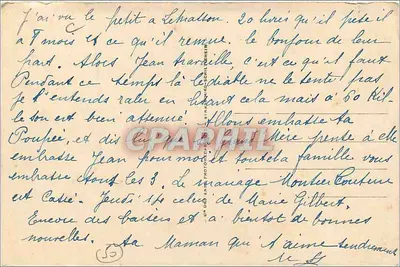 J'ai vu le petit a Lematton. 20 livres qu'il pèse il
a 8 mois et ce qu'il remue. le bonjour de leur
part. Alors Jean travaille, c'est ce qu'il faut
Pendant ce temps là le diable ne le tente pas
je t'entends raler en lisant cela mais à 60 Kil.
le son est bien atténué. Allons embrasse ta
Poupée, et dis lui que Grand Mère pense à elle
embrasse Jean pour moi et toute la famille vous
embrasse tous les 3. Le mariage Couture
est Cassé. Jeudi 14 celui de Marie Gilbert.
Encore des baisers et à bientôt de bonnes
nouvelles. ta Maman qui t'aime tendrement
50
CPAPHIL